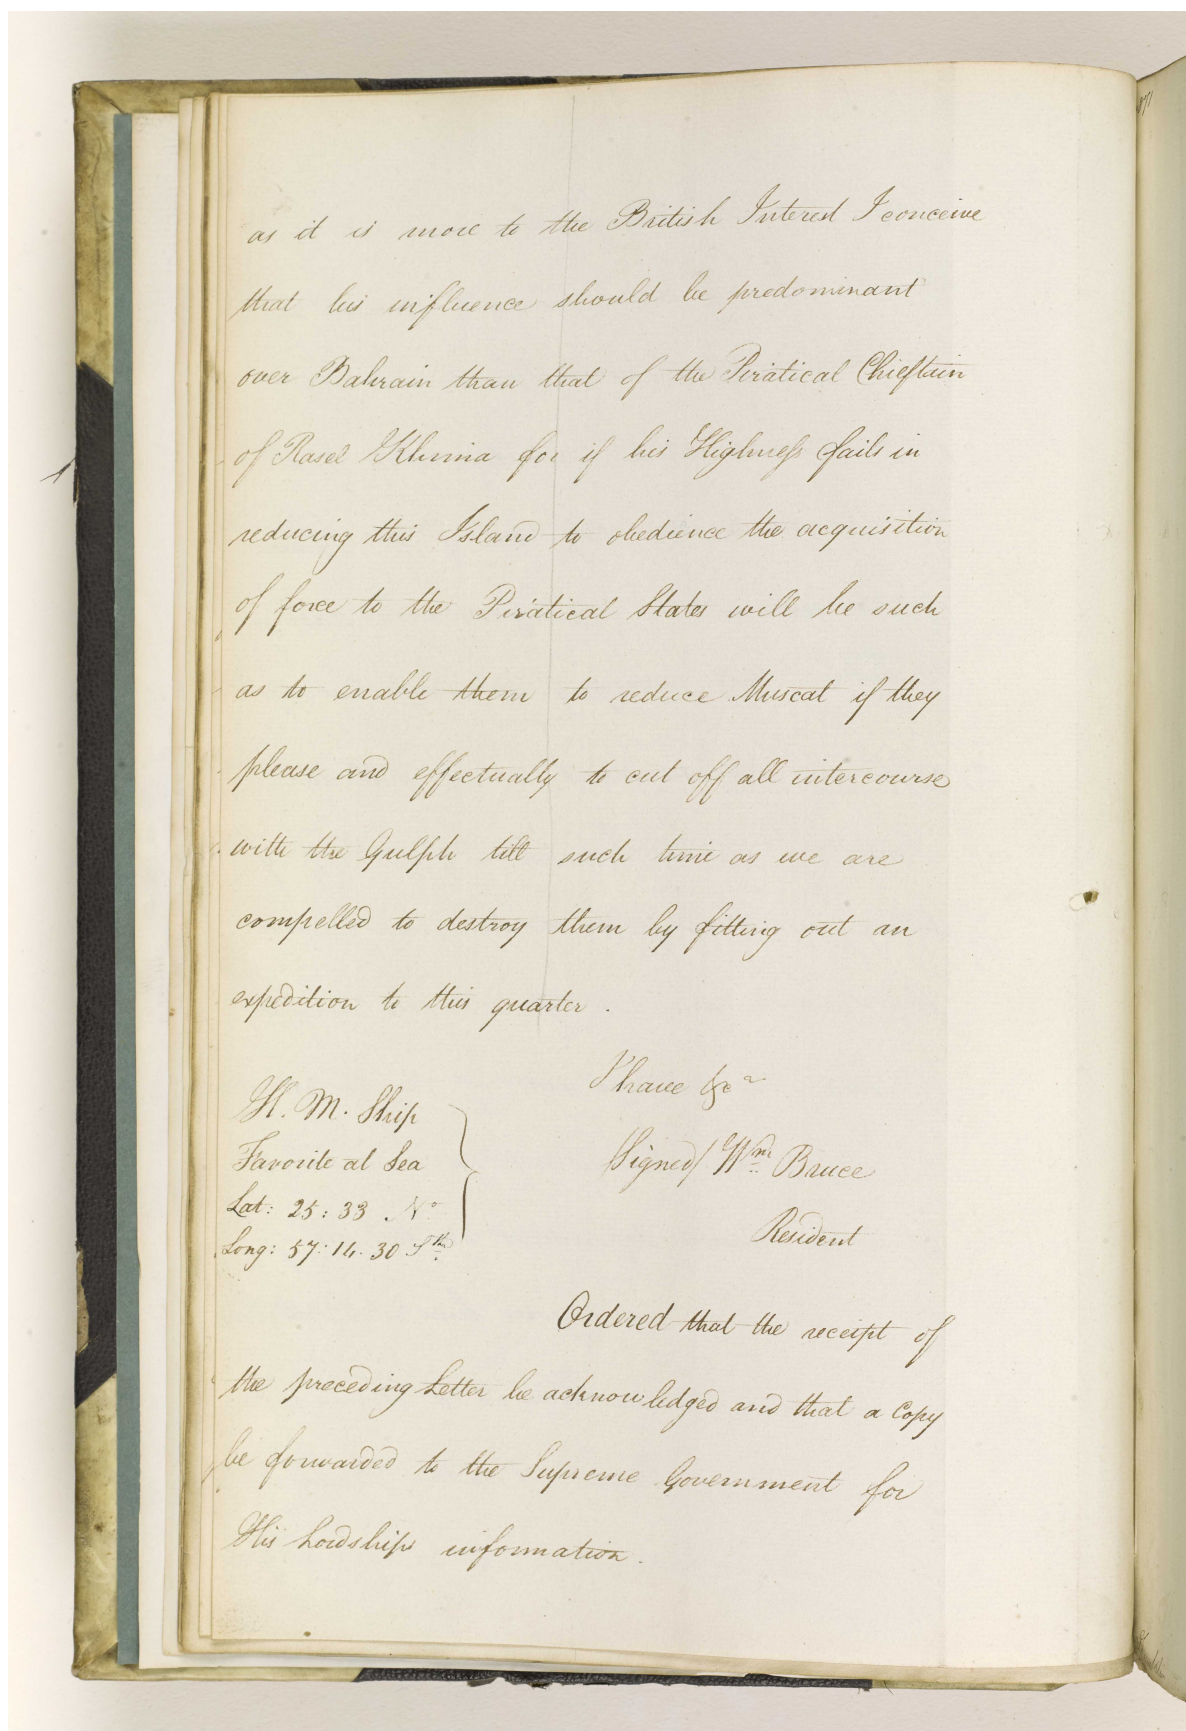 as it is more to the British Interest I conceive
that his influence should be predominant
over Bahrain than that of the Piratical Chieftain
of Rasel Khima for if his Highness fails in
reducing this Island to obedience the acquisition
of force to the Piratical States will be such
as to enable them to reduce Muscat if they
please and effectually to cut off all intercourse
with the Gulph till such time as we are
compelled to destroy them by fitting out an
expedition to this quarter.
I have &ca
H. M. Ship
Favorite at Sea
Lat: 25:33 No
Long: 57:14.30
Signed/ Wm Bruce
Resident
Ordered that the receipt of
the preceding Letter be acknowledged and that a Copy
be forwarded to the Supreme Government for
His Lordships information.